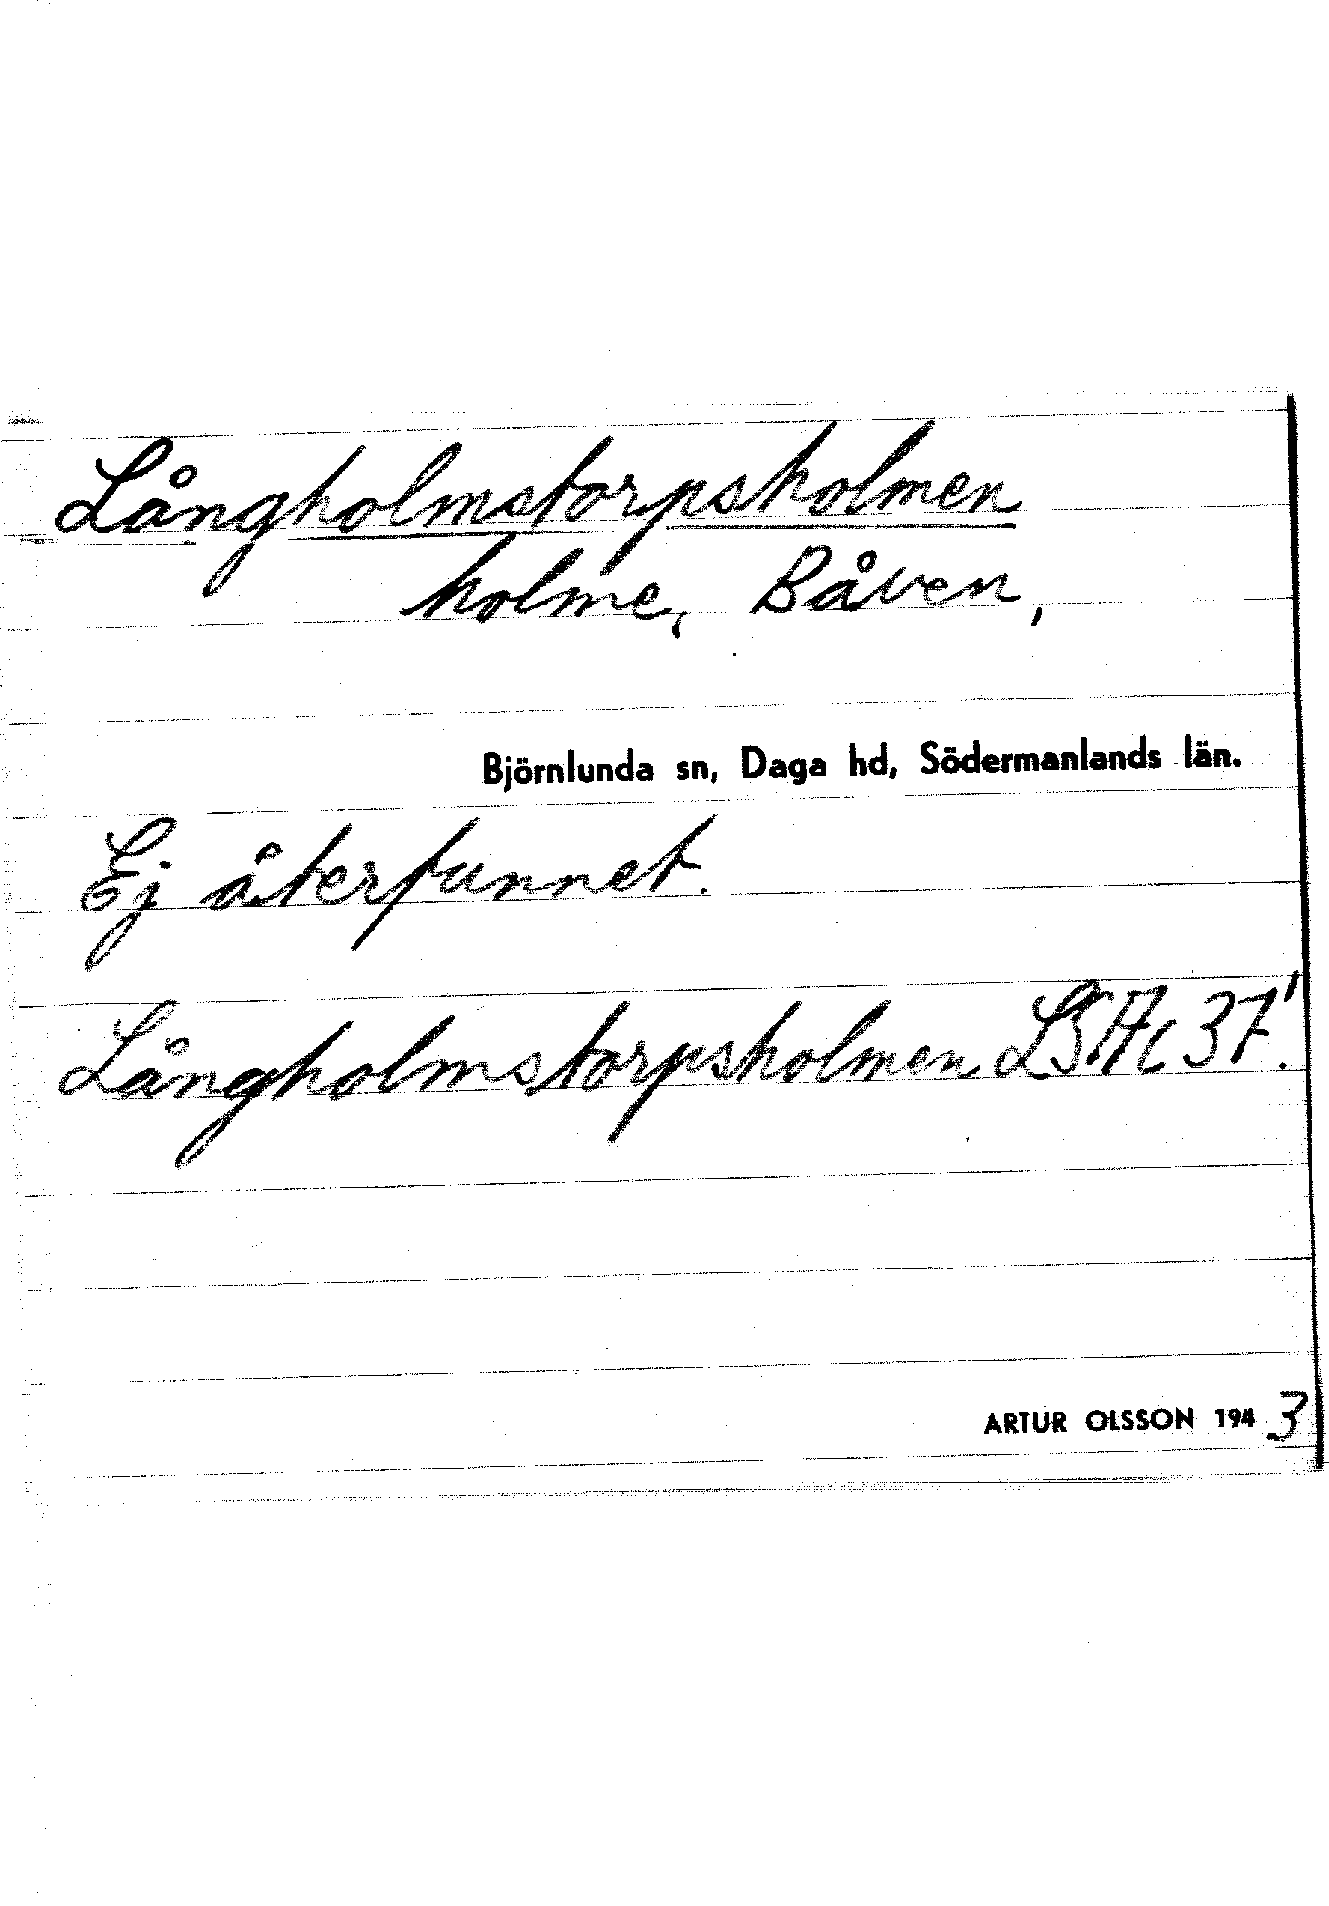 Långholmstorpsholmen
holme, Båven,
Björnlunda sn, Daga hd, Södermanlands län.
Ej återfunnet.
Långholmstorpsholmen LSA 37'.
ARTUR OLSSON 1943